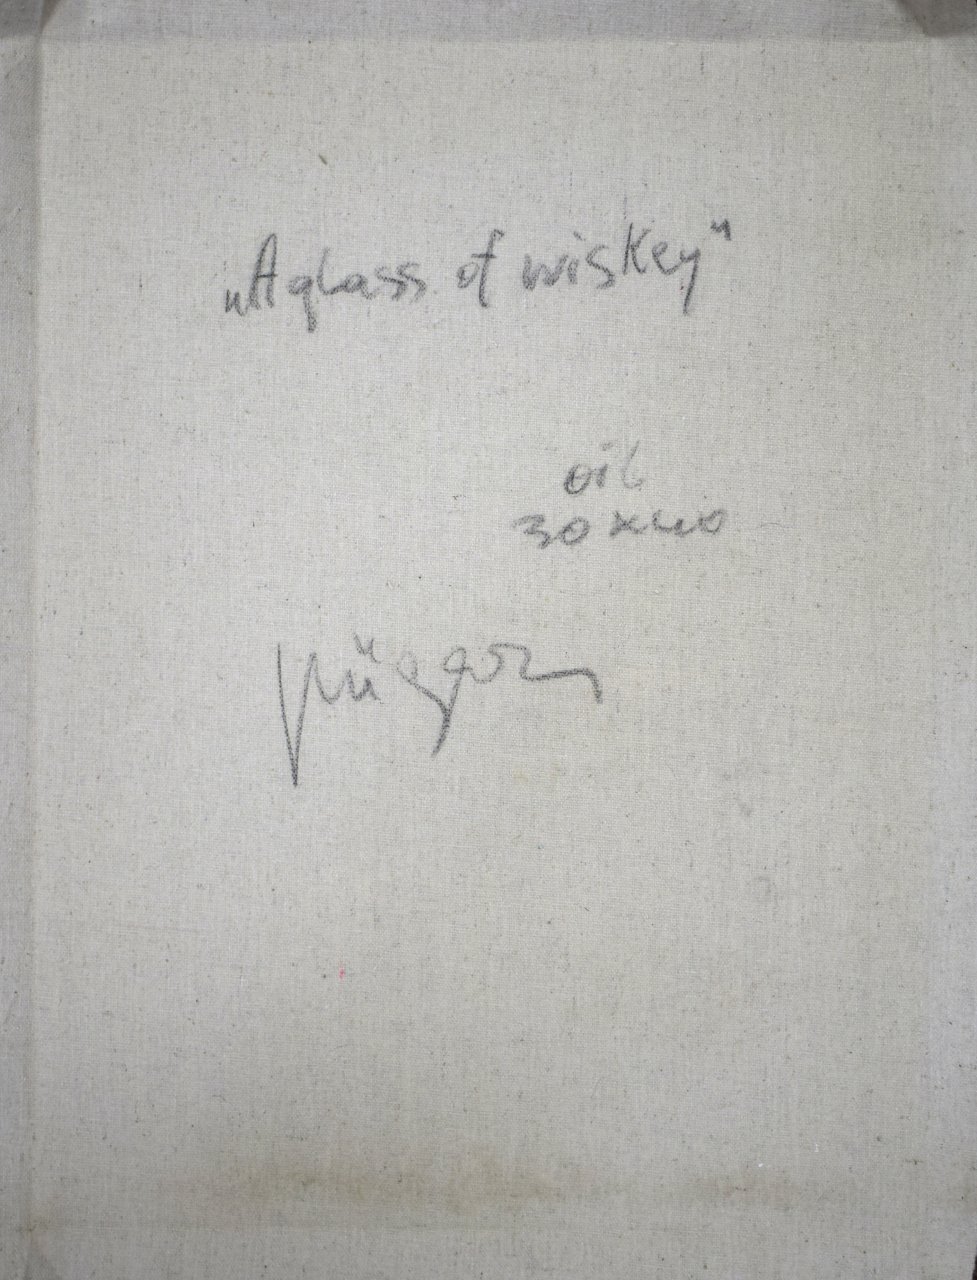 „A glass of wiskey"
oil
30x40